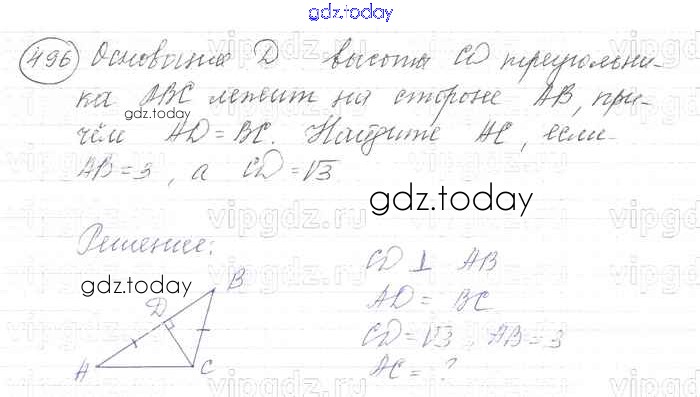 gdz.today
496 Основание D высоты CD треугольни-
ка ABC лежит на стороне AB, при-
gdz.today
чём AD = BC. Найдите AC, если
AB = 3, а CD = √3
gdz.today
Решение:
gdz.today
CD ⊥ AB
AD = BC
CD = √3, AB = 3
AC = ?
B
D
A
C